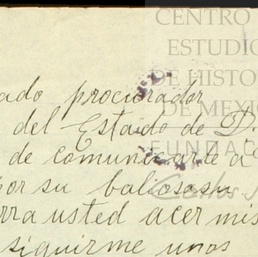 CENTRO
ESTUDIO
DE HISTO
DE MEXI
FUNDAC
Carlos
ado procurador
del Estado de D.
de comunicarte a
por su baliosasu
rra usted acer mis
siguirme unos